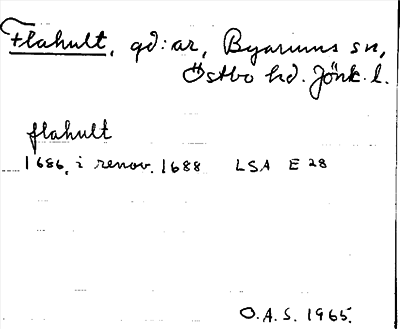 Flahult, gd:ar, Byarums sn,
Östbo hd. Jönk. l.
flahult
1686, i renov. 1688 LSA E 28
O.A.S. 1965.